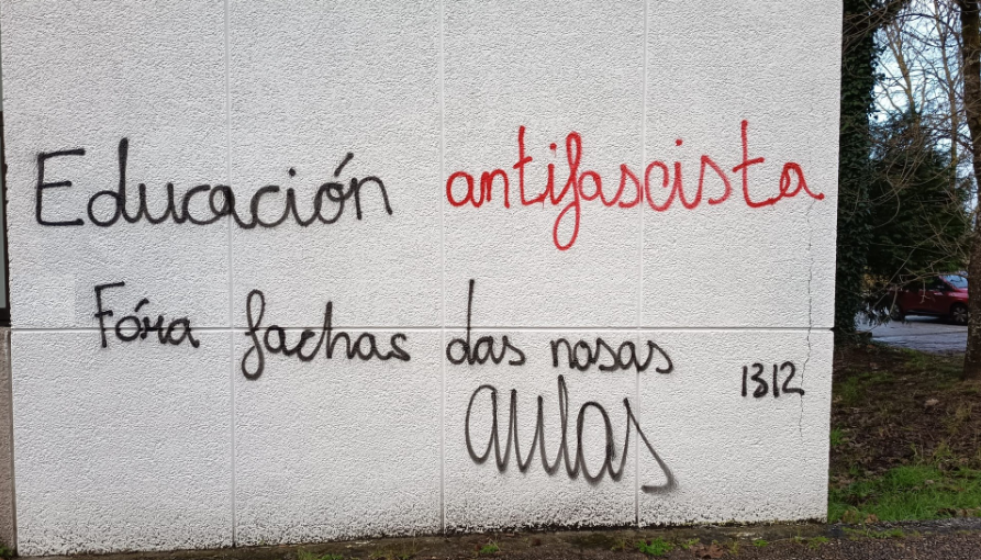 Educación antifascista
Fóra fachas das nosas
aulas
1312